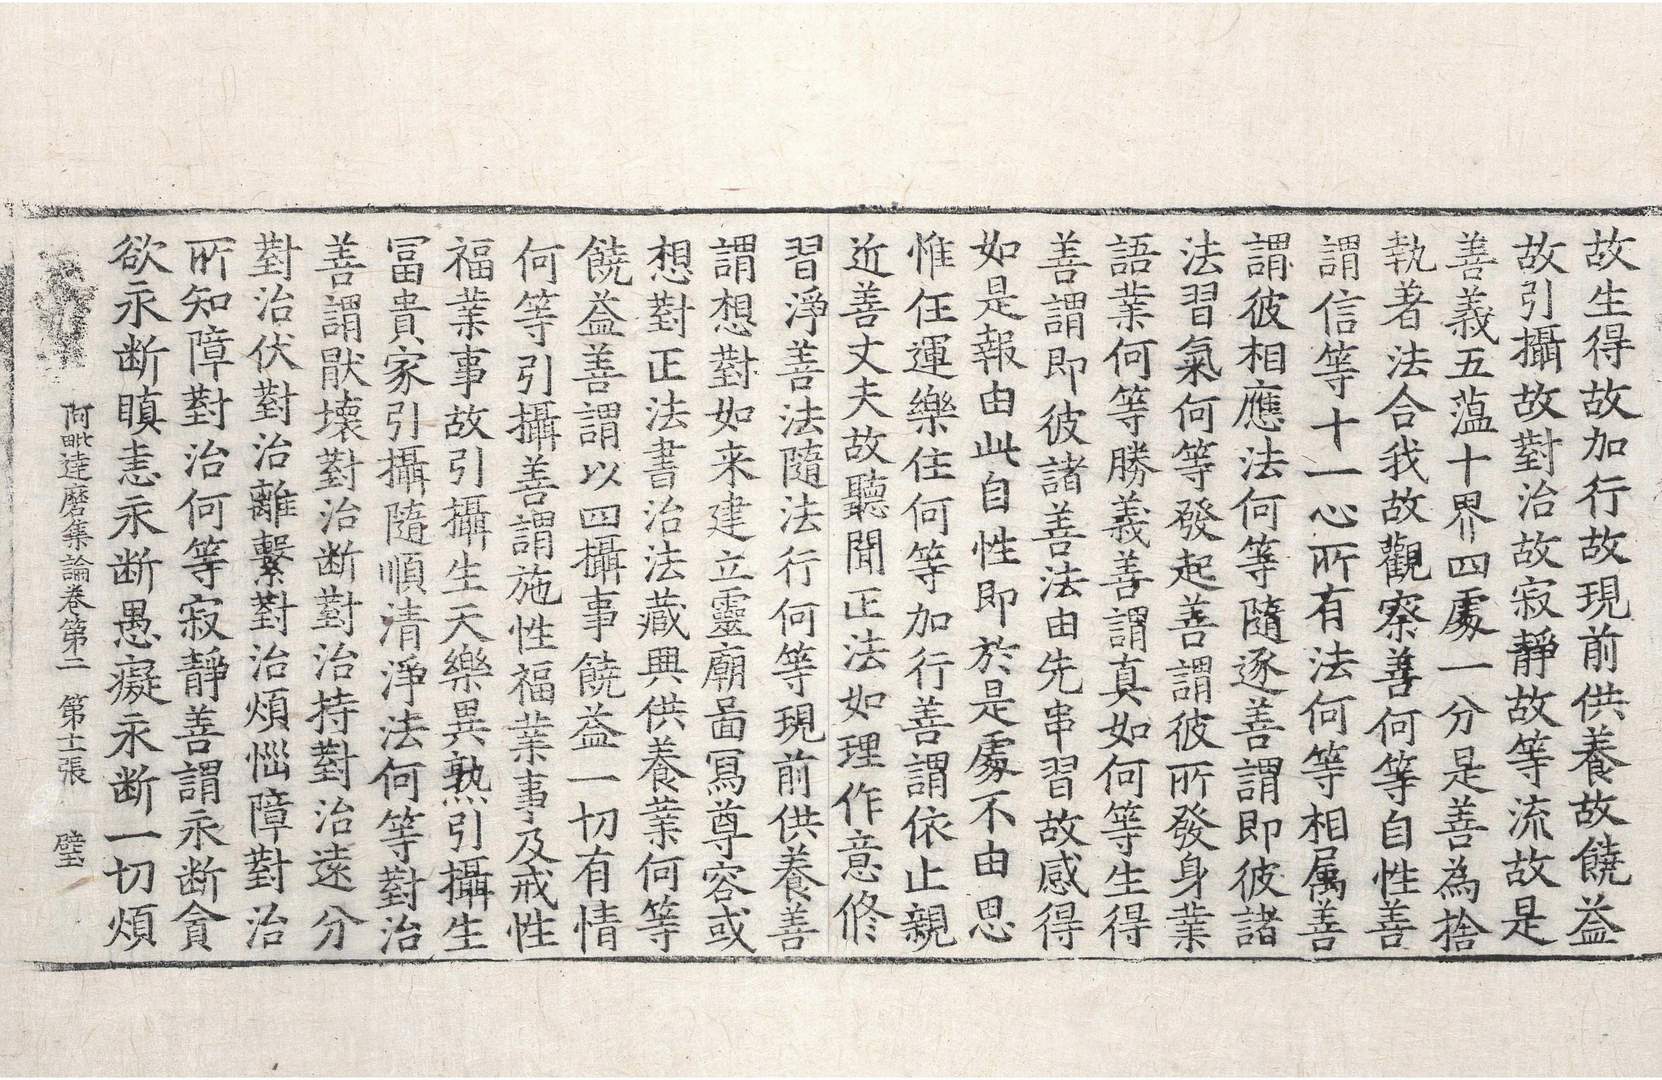 故生得故加行故現前供養故饒益
故引攝故對治故寂靜故等流故是
善義五蘊十界四處一分是善為捨
執著法合我故觀察善何等自性善
謂信等十一心所有法何等相属善
謂彼相應法何等隨逐善謂即彼諸
法習氣何等發起善謂彼所發身業
語業何等勝義善謂真如何等生得
善謂即彼諸善法由先串習故感得
如是報由此自性即於是處不由思
惟任運樂住何等加行善謂依止親
近善丈夫故聽聞正法如理作意修
習淨善法隨法行何等現前供養善
謂想對如来建立靈廟啚寫尊容或
想對正法書治法藏興供養業何等
饒益善謂以四攝事饒益一切有情
何等引攝善謂施性福業事及戒性
福業事故引攝生天樂異熟引攝生
冨貴家引攝隨順清淨法何等對治
善謂猒壞對治断對治持對治遠分
對治伏對治離繫對治煩惱障對治
所知障對治何等寂靜善謂永断貪
欲永断瞋恚永断愚癡永断一切煩
阿毗達磨集論卷第二 第十一張 壁